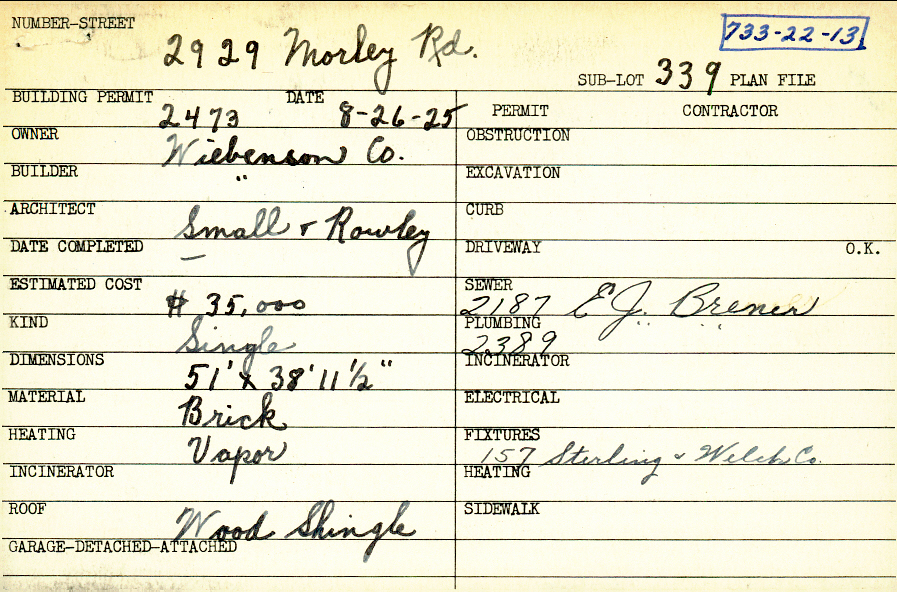 NUMBER-STREET
2929 Morley Rd.
733-22-13
SUB-LOT 339 PLAN FILE
BUILDING PERMIT 2473 DATE 8-26-25
PERMIT CONTRACTOR
OWNER Wiebenson Co.
OBSTRUCTION
BUILDER "
EXCAVATION
ARCHITECT Small & Rowley
CURB
DATE COMPLETED —
DRIVEWAY O.K.
ESTIMATED COST $ 35,000
SEWER 2187 E.J. Brener
KIND Single
PLUMBING 2389 " "
DIMENSIONS 51' x 38' 11 1/2"
INCINERATOR
MATERIAL Brick
ELECTRICAL
HEATING Vapor
FIXTURES 157 Sterling & Welch Co.
INCINERATOR
HEATING
ROOF Wood Shingle
SIDEWALK
GARAGE-DETACHED-ATTACHED